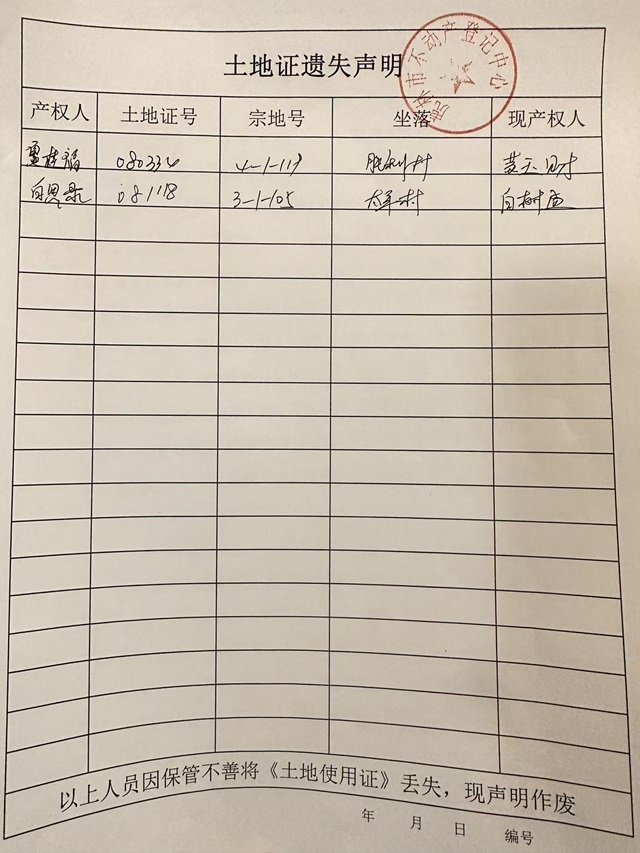 土地证遗失声明
虎林市不动产登记中心
产权人 土地证号 宗地号 坐落 现产权人
080334 4-1-119 胜利村
081118 3-1-105 村 白树
以上人员因保管不善将《土地使用证》丢失，现声明作废
年 月 日 编号